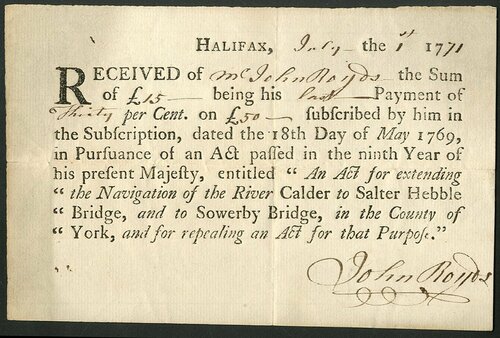 HALIFAX, July the 1st 1771
RECEIVED of Mr John Royds the Sum
of £15 — being his last — Payment of
Thirty per Cent. on £50 — subscribed by him in
the Subscription, dated the 18th Day of May 1769,
in Pursuance of an Act paſſed in the ninth Year of
his present Majeſty, entitled “ An Act for extending
“ the Navigation of the River Calder to Salter Hebble
“ Bridge, and to Sowerby Bridge, in the County of
“ York, and for repealing an Act for that Purpoſe.”
John Royds